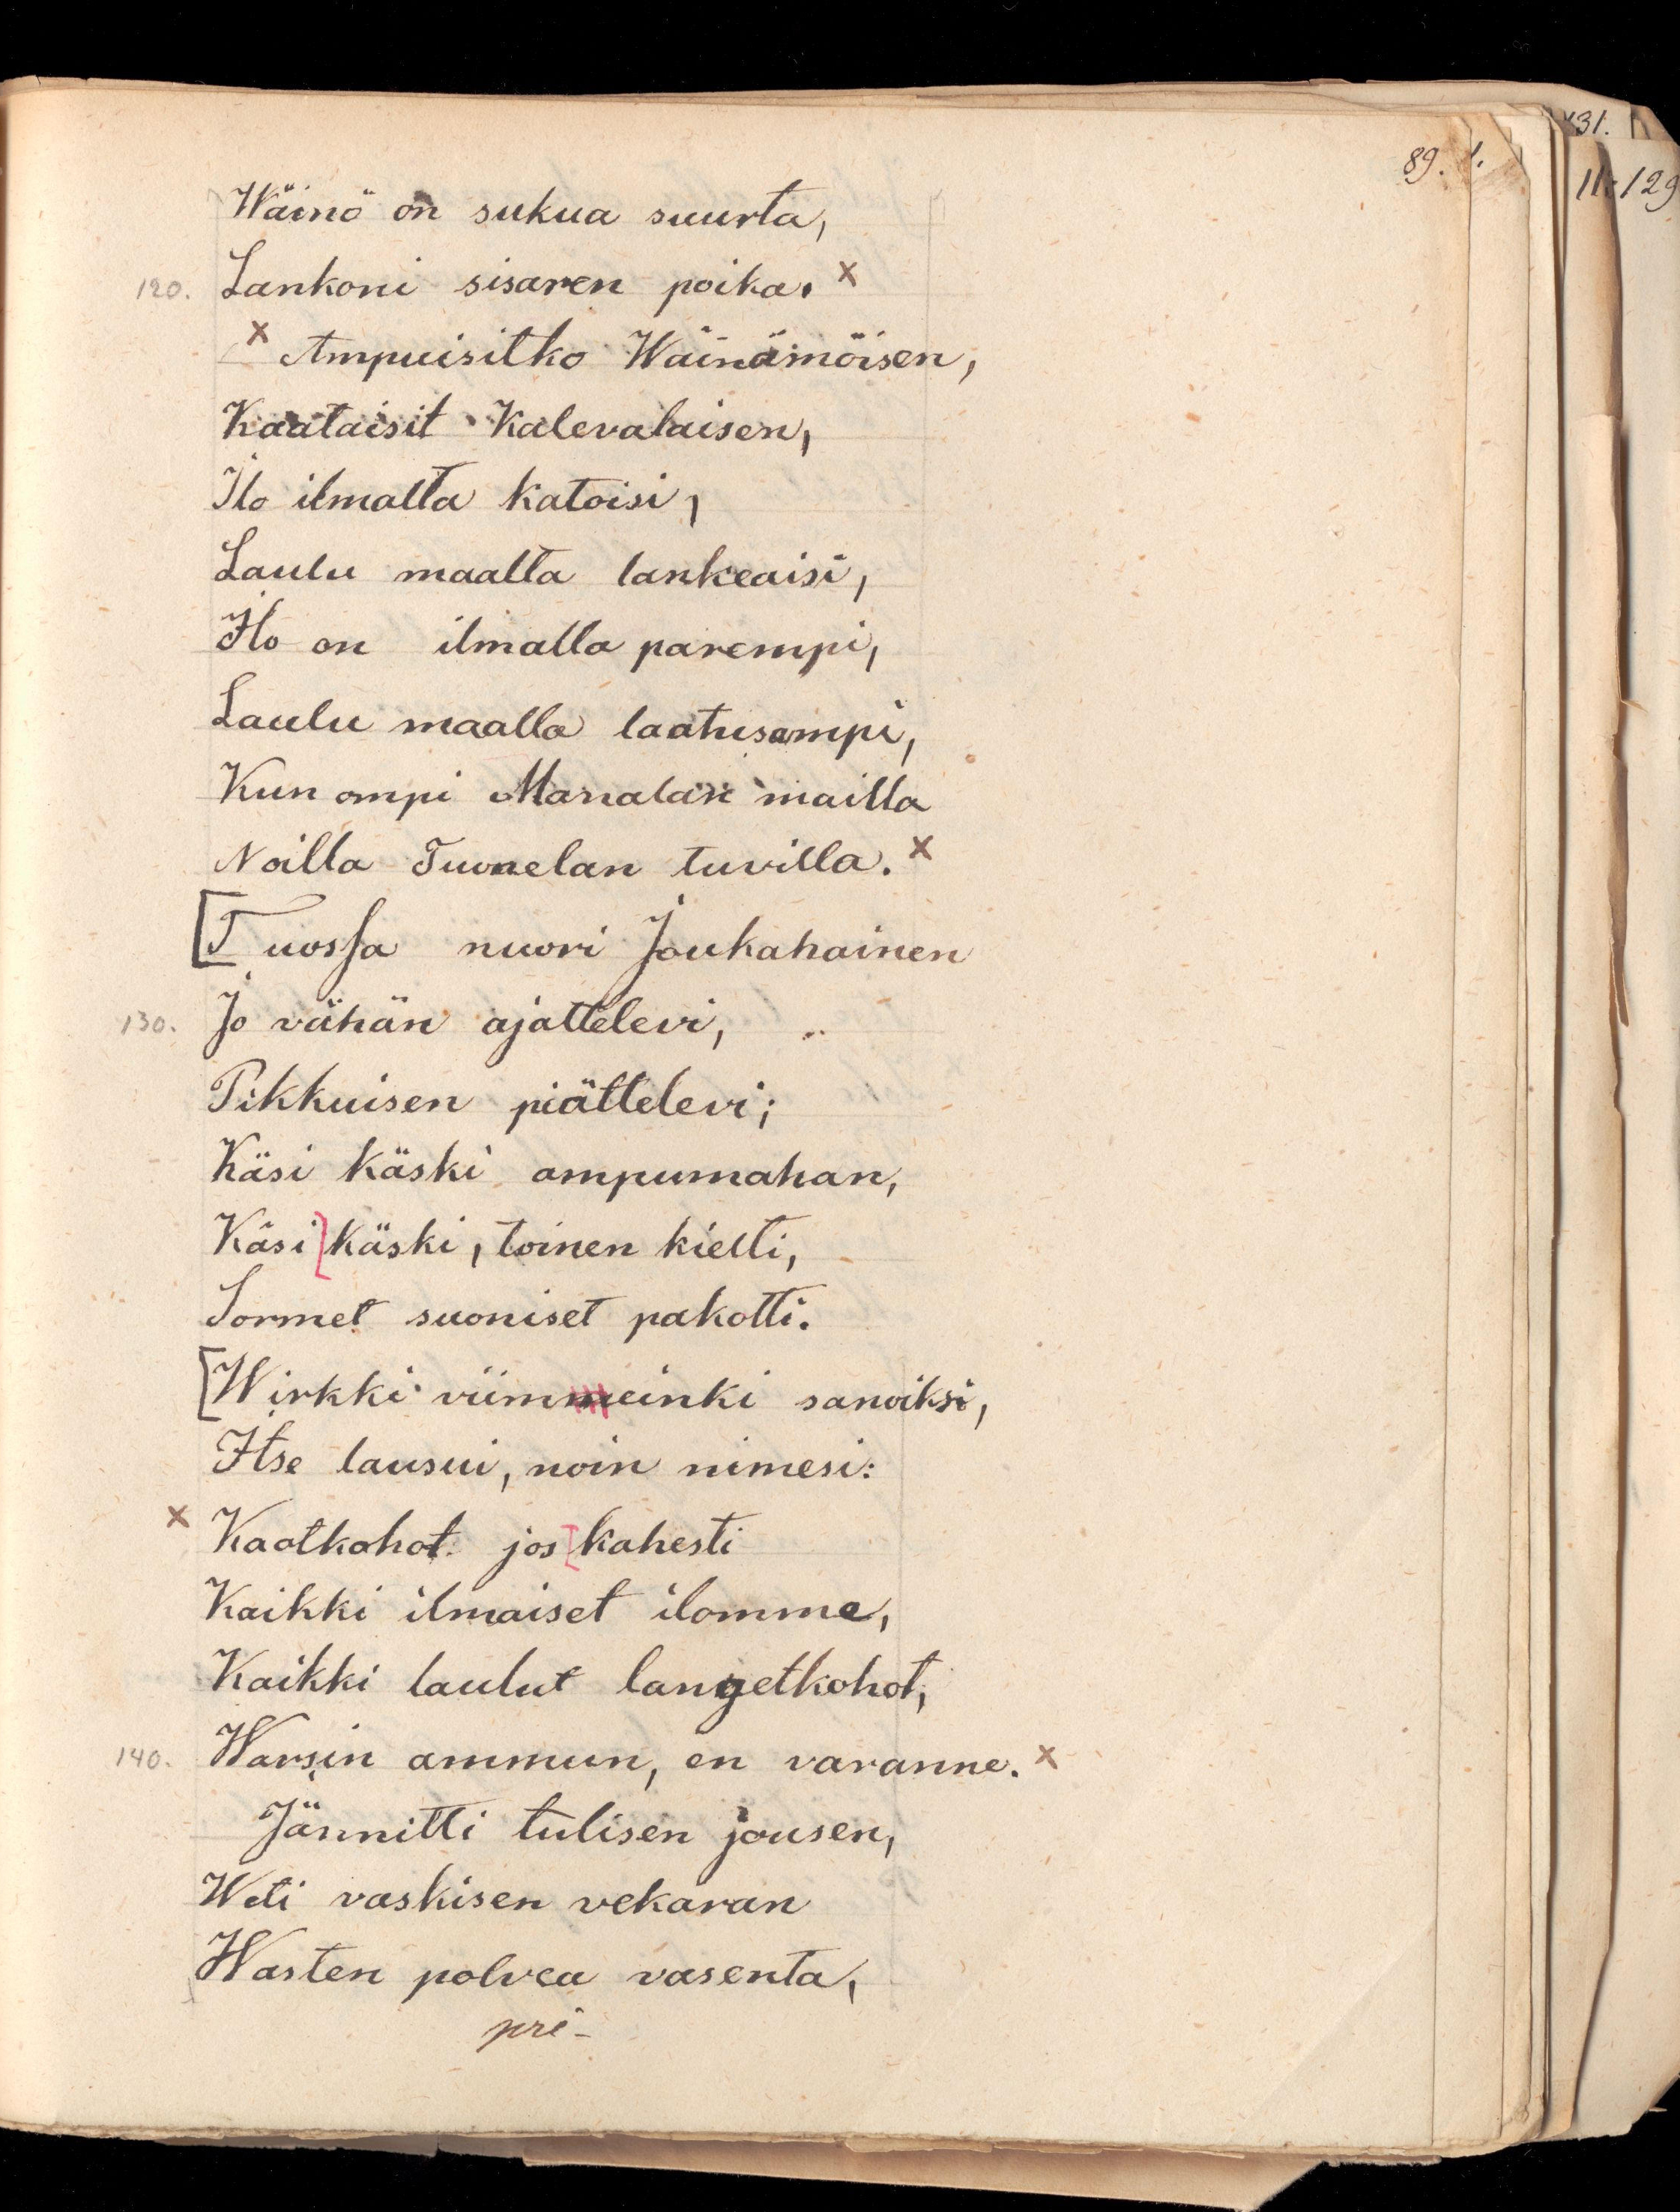 89. 1.
131.
11:129
Wäinö on sukua suurta,
120. Lankoni sisaren poika. x
x Ampuisitko Wäinämöisen,
Kaataisit Kalevalaisen,
Ilo ilmalta katoisi,
Laulu maalta lankeaisi,
Ilo on ilmalla parempi,
Laulu maalla laatusampi,
Kun ompi Manalan mailla
Noilla Tuonelan tuvilla. x
[Tuossa nuori Joukahainen
130. Jo vähän ajattelevi,
Pikkuisen piättelevi;
Käsi käski ampumahan,
Käsi] käski, toinen kielti,
Sormet suoniset pakotti.
[Wirkki viimmeinki sanoiksi,
Itse lausui, noin nimesi:
x Kaotkohot jos [kahesti
Kaikki ilmaiset ilomme,
Kaikki laulut langetkohot,
140. Warsin ammun, en varanne. x
Jännitti tulisen jousen,
Weti vaskisen vekaran
Wasten polvea vasenta,
pri-